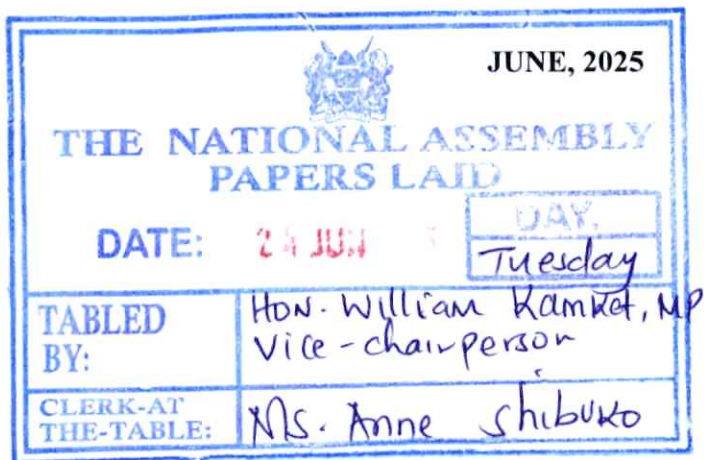 JUNE, 2025
THE NATIONAL ASSEMBLY
PAPERS LAID
DATE: 24 JUN
DAY.
Tuesday
TABLED BY:
Hon. William Kamket, MP
Vice-chairperson
CLERK-AT THE-TABLE:
Ms. Anne Shibuko